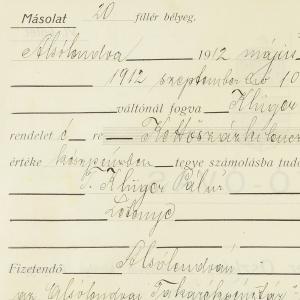 Másolat 20 fillér bélyeg.
Alsólendva 1912 május
1912 szeptember hó 10
váltónál fogva Klüger
rendelet é re Kettőszázkilenc
értéke készpénzben tegye számolásba tud
T. Klüger Pál úr
Lotenye
Fizetendő Alsólendván
az Alsólendvai Takarékpénztár